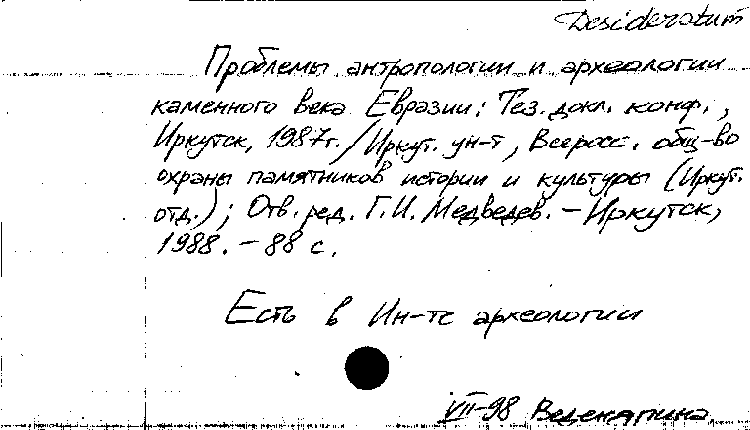 Desideratum
Проблемы антропологии и археологии
каменного века Евразии: Тез. докл. конф.,
Иркутск, 1987г./Иркут. ун-т, Всеросс. общ-во
охраны памятников истории и культуры (Иркут.
отд.); Отв. ред. Г.И. Медведев. – Иркутск,
1988. – 88 с.
Есть в Ин-те археологии
VII-98 Веденяпина